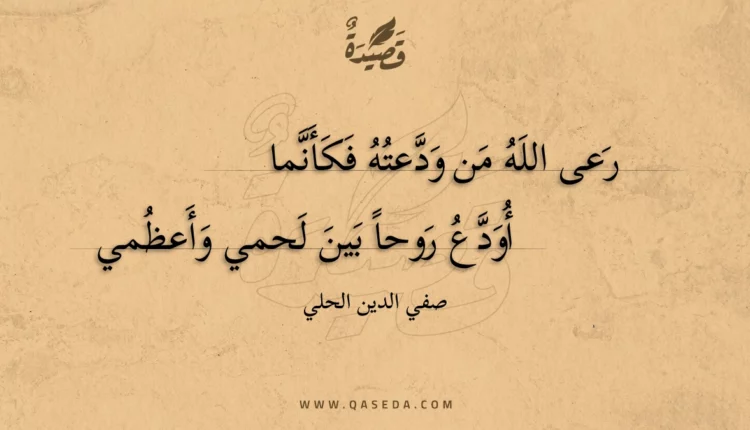 قَصِيدَةٌ
رَعى اللَهُ مَن وَدَّعتُهُ فَكَأَنَّما
أُوَدَّعُ رَوحاً بَينَ لَحمي وَأَعظُمي
صفي الدين الحلي
WWW.QASEDA.COM